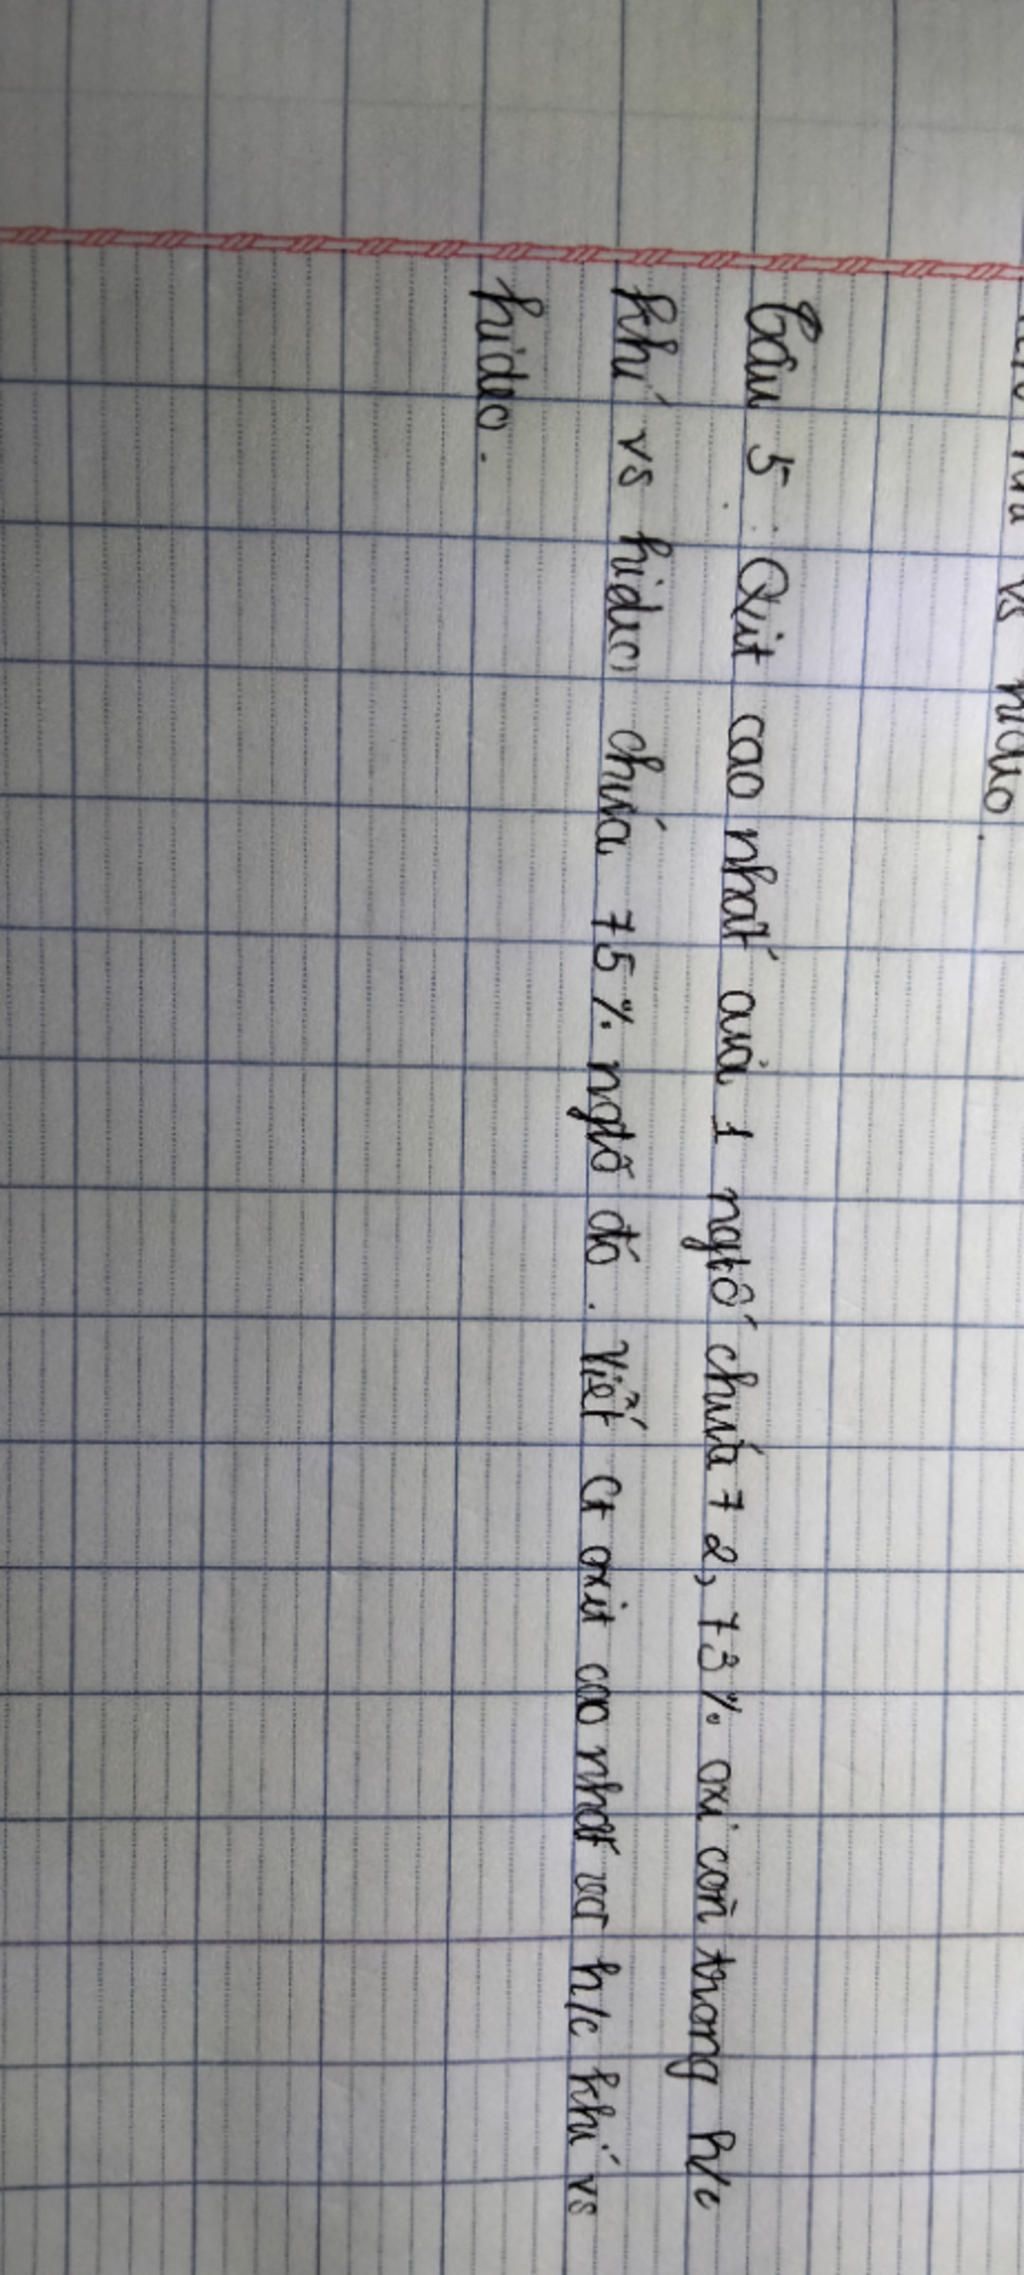 vs hidro.
Câu 5: Oxit cao nhất của 1 ngtố chứa 72,73% oxi còn trong h/c
khí vs hidro chứa 75% ngtố đó. Viết ct oxit cao nhất và h/c khí vs
hidro.